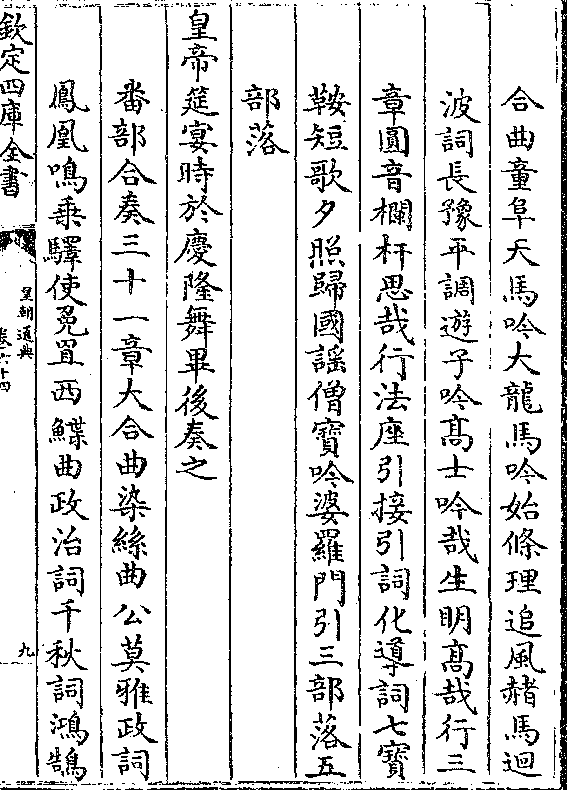 合曲童阜天馬吟大龍馬吟始條理追風赭馬迴
波詞長豫平調遊子吟髙士吟哉生明髙哉行三
章圓音欄杆思哉行法座引接引詞化導詞七寶
鞍短歌夕照歸國謡僧寶吟婆羅門引三部落五
部落
皇帝筵宴時於慶隆舞畢後奏之
番部合奏三十一章大合曲染絲曲公莫雅政詞
鳳凰鳴乗驛使兔罝西鰈曲政治詞千秋詞鴻鵠
欽定四庫全書
皇朝通典
卷六十四
九